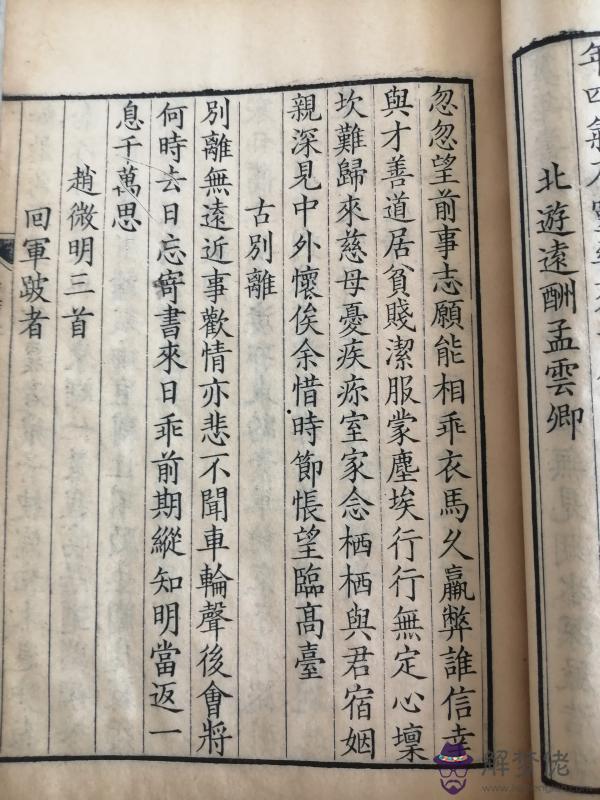 年四氣不
北遊遠酬孟雲卿
忽忽望前事志願能相乖衣馬久羸弊誰信幸
與才善道居貧賤潔服蒙塵埃行行無定心壈
坎難歸來慈母憂疾疢室家念栖栖與君宿姻
親深見中外懷俟余惜時節悵望臨髙臺
古別離
別離無遠近事歡情亦悲不聞車輪聲後會將
何時去日忘寄書來日乖前期縱知明當返一
息千萬思
趙微明三首
回軍跛者
解梦佬